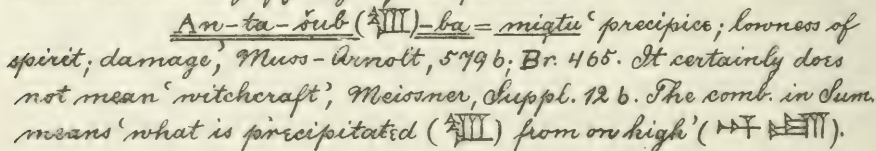 An-ta-šub (𒋗)-ba = miqtu ‘precipice; lowness of
spirit; damage,’ Muss-Arnolt, 579 b; Br. 465. It certainly does
not mean ‘witchcraft’, Meissner, Suppl. 12 b. The comb. in Sum.
means ‘what is precipitated () from on high’ (𒀭 𒋫).